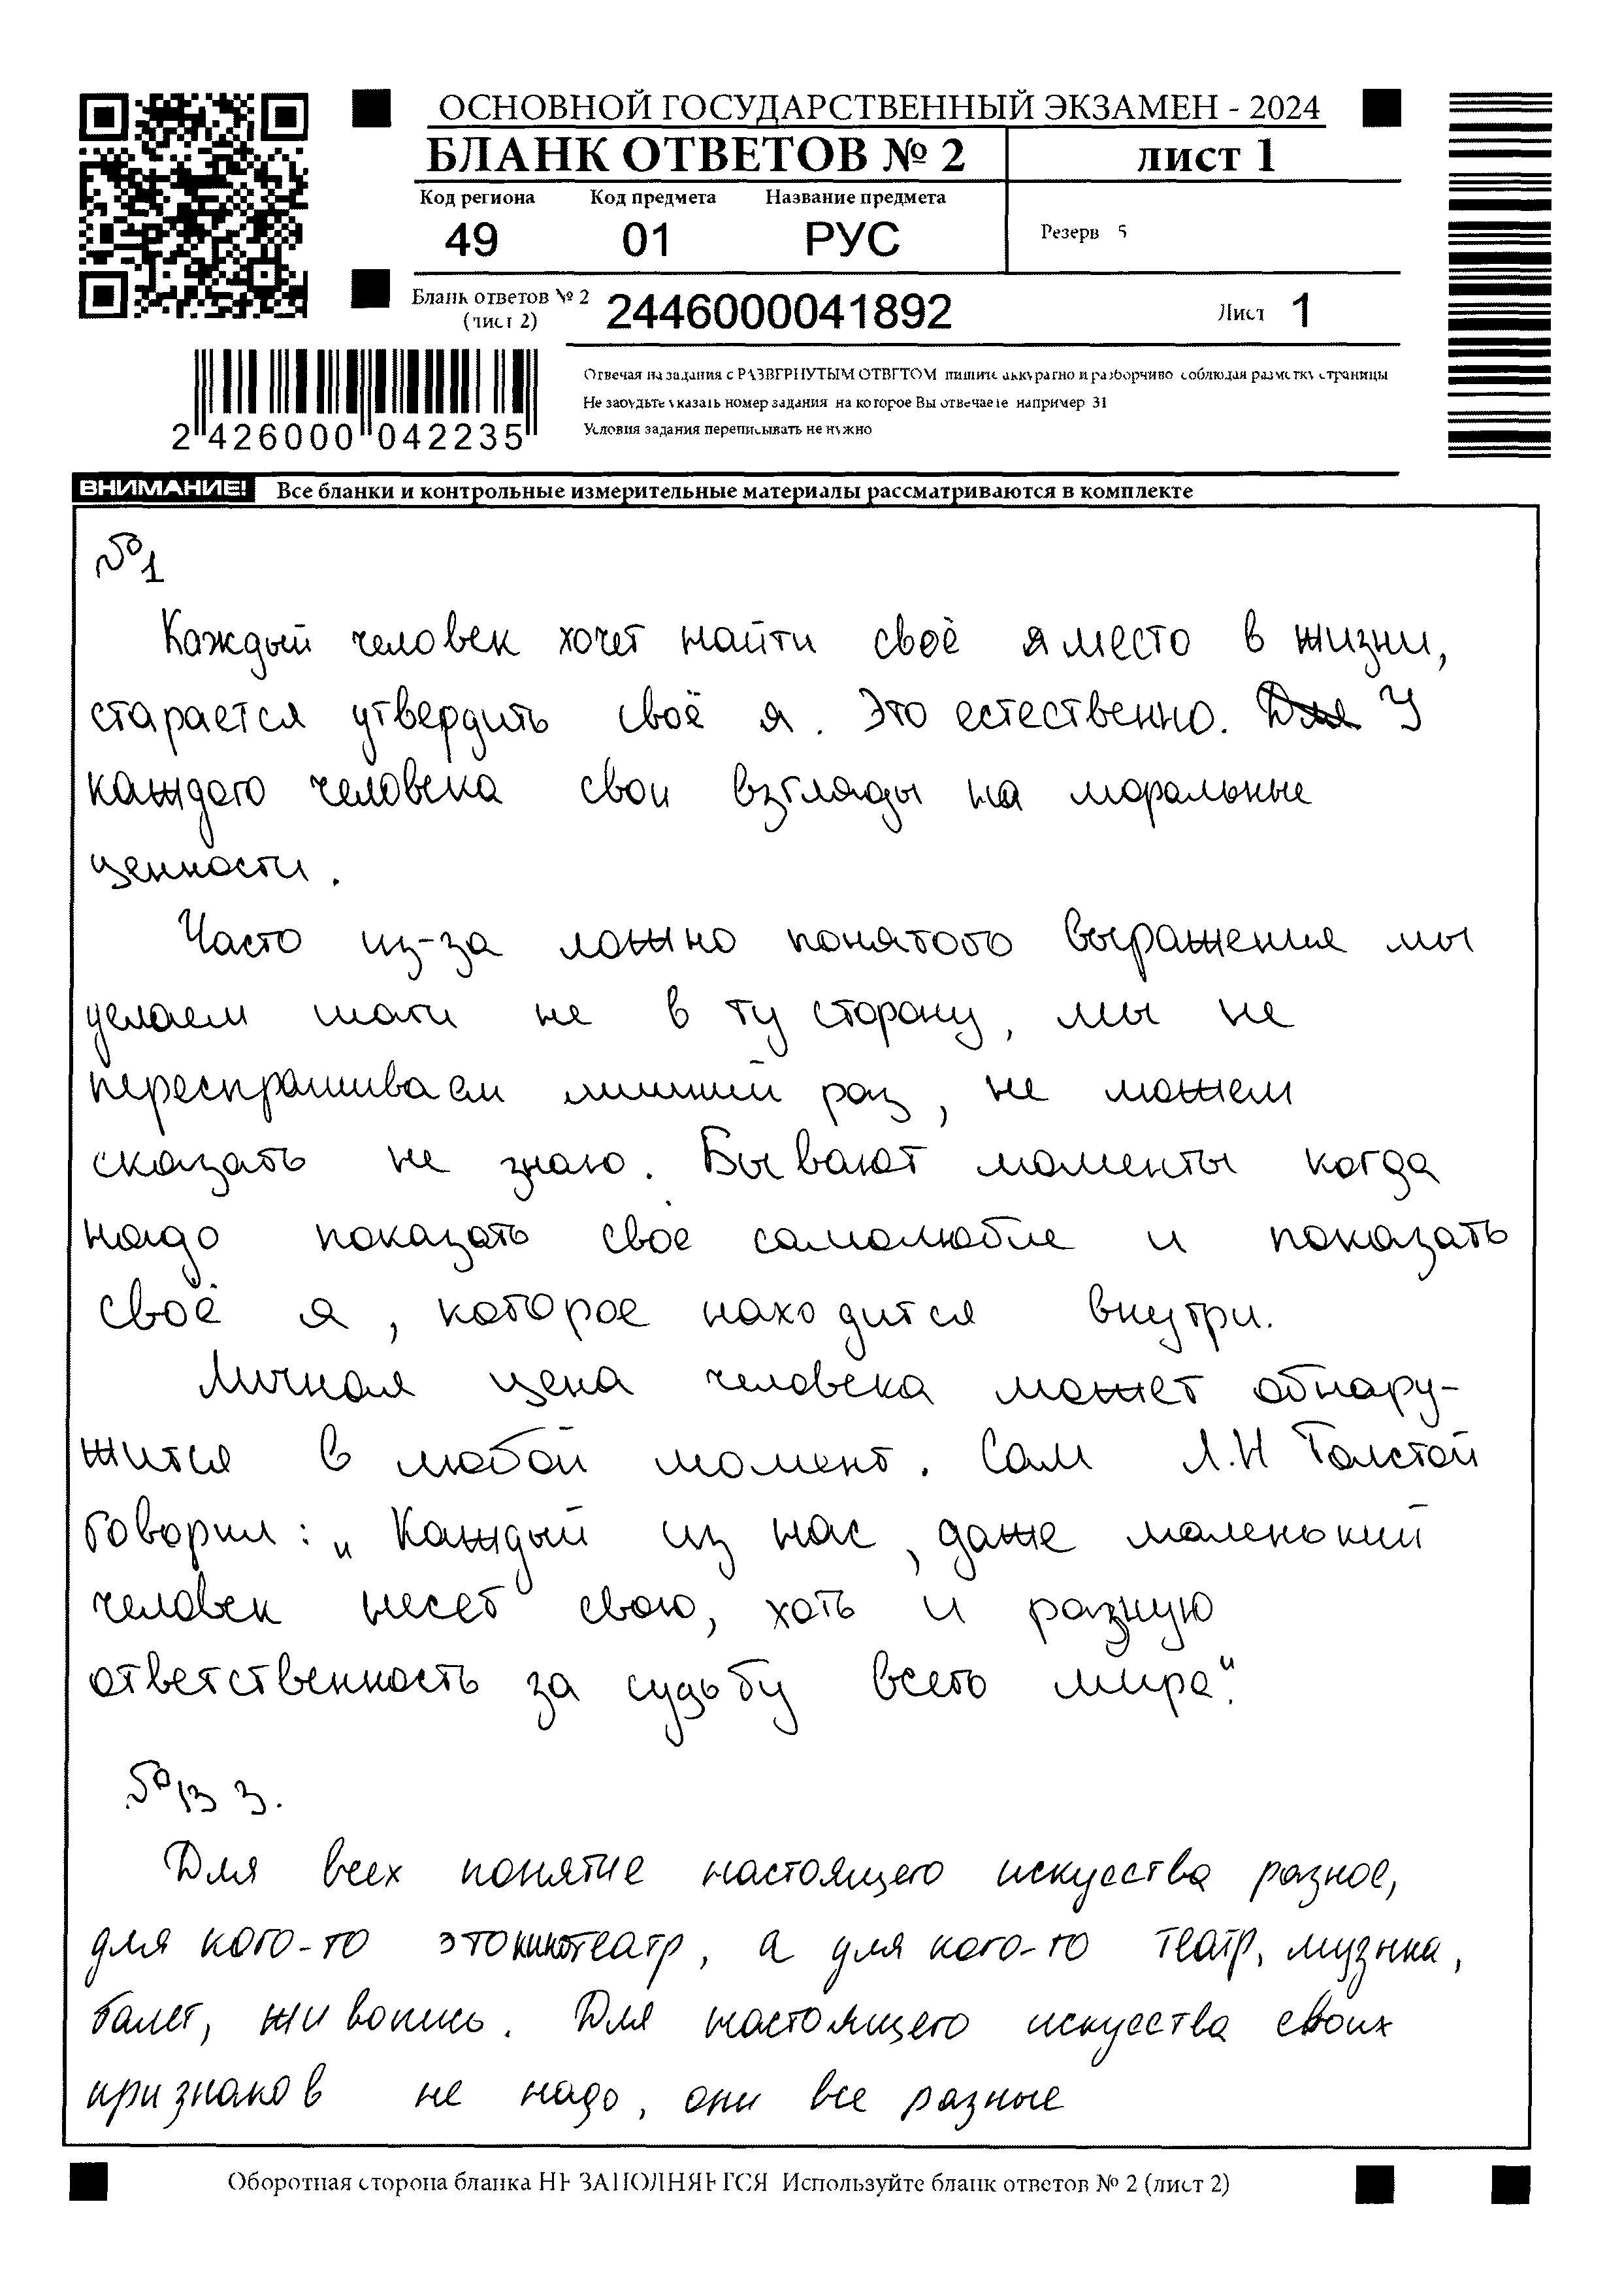 ОСНОВНОЙ ГОСУДАРСТВЕННЫЙ ЭКЗАМЕН - 2024
БЛАНК ОТВЕТОВ № 2
лист 1
Код региона Код предмета Название предмета
49 01 РУС
Резерв 5
Бланк ответов № 2
(лист 2)
2446000041892
Лист 1
2 426000 042235
Отвечая на задания с РАЗВЕРНУТЫМ ОТВЕТОМ пишите аккуратно и разборчиво соблюдая разметку страницы
Не забудьте указать номер задания на которое Вы отвечаете например 31
Условия задания переписывать не нужно
ВНИМАНИЕ! Все бланки и контрольные измерительные материалы рассматриваются в комплекте
№1
Каждый человек хочет найти своё я место в жизни,
старается утвердить своё я. Это естественно. Для У
каждого человека свои взгляды на моральные
ценности.
Часто из-за ложно понятого выражения мы
делаем шаги не в ту сторону, мы не
переспрашиваем лишний раз, не можем
сказать не знаю. Бывают моменты когда
надо показать своё самолюбие и показать
своё я, которое находится внутри.
Личная цена человека может обнару-
жится в любой момент. Сам Л.Н Толстой
говорил: „Каждый из нас, даже маленький
человек несет свою, хоть и разную
ответственность за судьбу всего мира“.
№13 3.
Для всех понятие настоящего искусства разное,
для кого-то это кинотеатр, а для кого-то театр, музыка,
балет, живопись. Для настоящего искусства своих
признаков не надо, они все разные
Оборотная сторона бланка НЕ ЗАПОЛНЯЕТСЯ Используйте бланк ответов № 2 (лист 2)